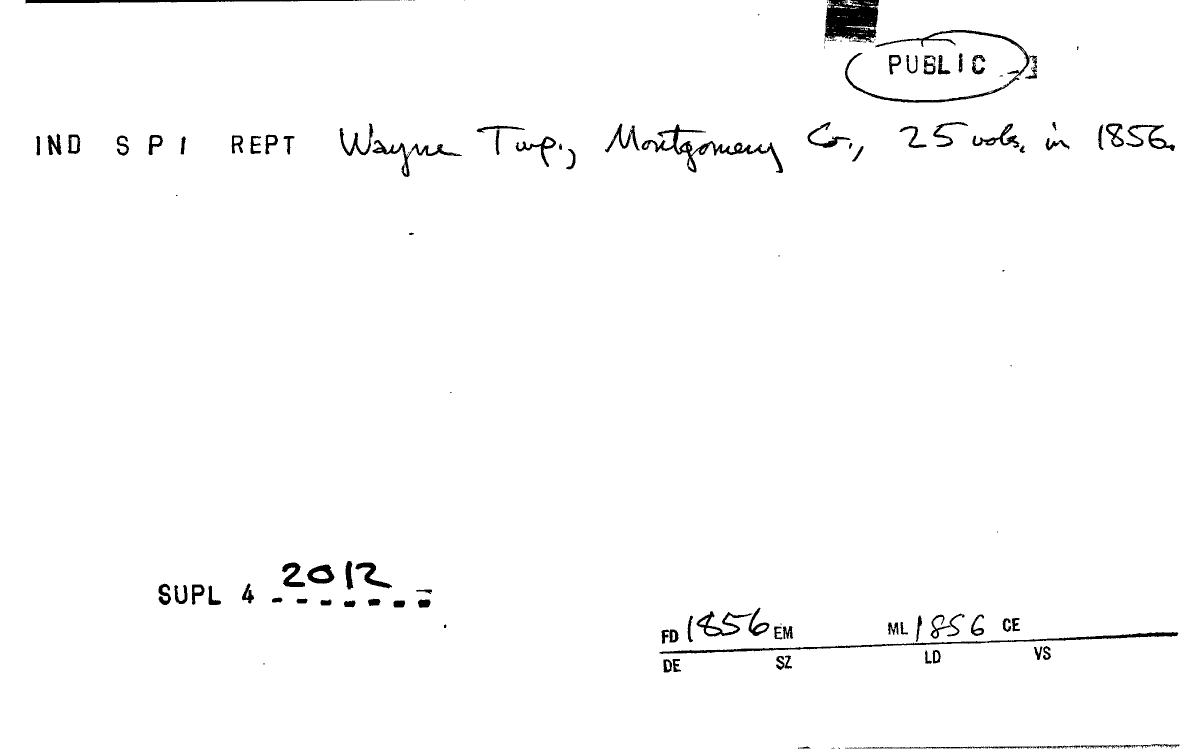 PUBLIC
IND S P I REPT Wayne Twp., Montgomery Co., 25 vols. in 1856.
SUPL 4 2012
FD 1856 EM ML 1856 CE
DE SZ LD VS